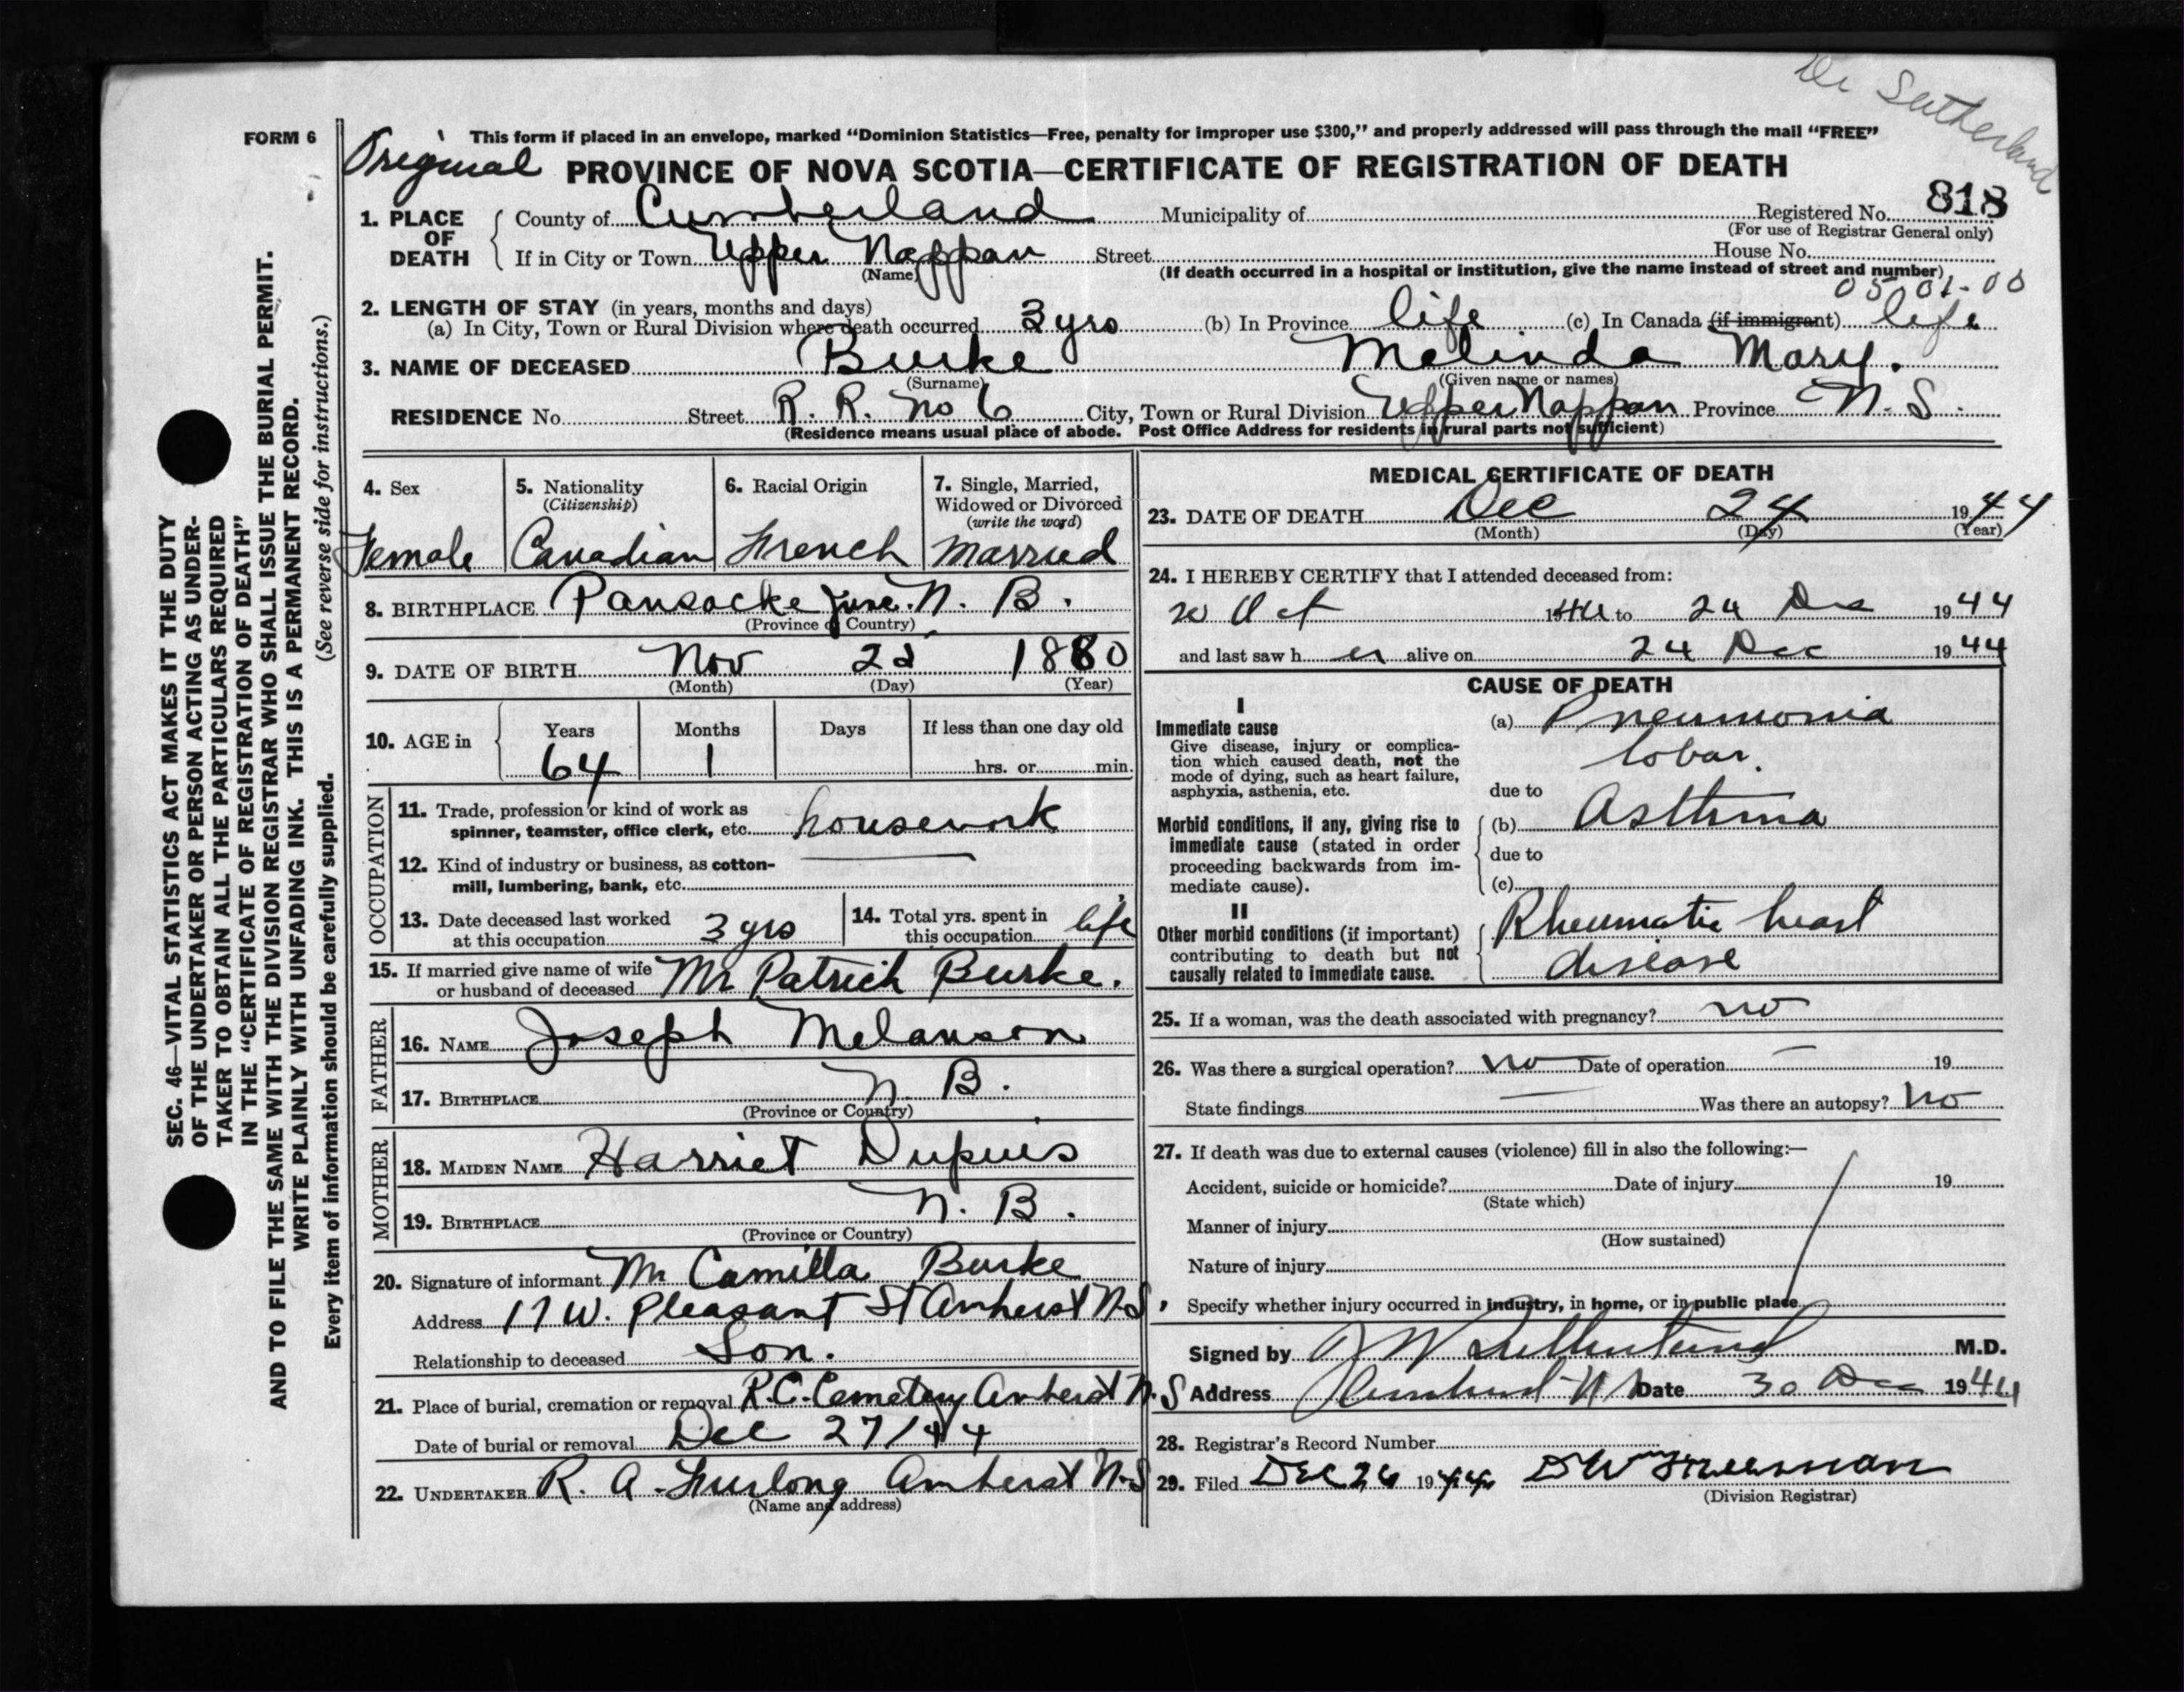 Dr Sutherland
FORM 6
This form if placed in an envelope, marked "Dominion Statistics—Free, penalty for improper use $300," and properly addressed will pass through the mail "FREE"
Original PROVINCE OF NOVA SCOTIA—CERTIFICATE OF REGISTRATION OF DEATH
1. PLACE OF DEATH County of Cumberland Municipality of Registered No. 818
(For use of Registrar General only)
If in City or Town Upper Nappan Street House No.
(Name) (If death occurred in a hospital or institution, give the name instead of street and number)
05 01-00
2. LENGTH OF STAY (in years, months and days)
(a) In City, Town or Rural Division where death occurred 3 yrs (b) In Province life (c) In Canada (if immigrant) life
3. NAME OF DECEASED Burke Melinda Mary.
(Surname) (Given name or names)
RESIDENCE No. Street R. R. No 6 City, Town or Rural Division Upper Nappan Province N. S.
(Residence means usual place of abode. Post Office Address for residents in rural parts not sufficient)
4. Sex Female
5. Nationality (Citizenship) Canadian
6. Racial Origin French
7. Single, Married, Widowed or Divorced (write the word) Married
8. BIRTHPLACE Pansacke June. N. B.
(Province or Country)
9. DATE OF BIRTH Nov 22 1880
(Month) (Day) (Year)
10. AGE in Years 64 Months 1 Days If less than one day old hrs. or min.
OCCUPATION
11. Trade, profession or kind of work as spinner, teamster, office clerk, etc. housework
12. Kind of industry or business, as cotton-mill, lumbering, bank, etc.
13. Date deceased last worked at this occupation 3 yrs
14. Total yrs. spent in this occupation life
15. If married give name of wife or husband of deceased Mr Patrick Burke.
FATHER
16. NAME Joseph Melanson
17. BIRTHPLACE N. B.
(Province or Country)
MOTHER
18. MAIDEN NAME Harriet Dupuis
19. BIRTHPLACE N. B.
(Province or Country)
20. Signature of informant Mr Camilla Burke
Address 17 W. Pleasant St Amherst N.S
Relationship to deceased Son.
21. Place of burial, cremation or removal R.C. Cemetery Amherst N.S
Date of burial or removal Dec 27/44
22. UNDERTAKER R. A. Furlong Amherst N.S
(Name and address)
MEDICAL CERTIFICATE OF DEATH
23. DATE OF DEATH Dec 24 1944
(Month) (Day) (Year)
24. I HEREBY CERTIFY that I attended deceased from:
20 Oct 1944 to 24 Dec 1944
and last saw her alive on 24 Dec 1944
CAUSE OF DEATH
I
Immediate cause (a) Pneumonia
Give disease, injury or complication which caused death, not the mode of dying, such as heart failure, asphyxia, asthenia, etc.
lobar.
due to
Morbid conditions, if any, giving rise to immediate cause (stated in order proceeding backwards from immediate cause).
(b) Asthma
due to
(c)
II
Other morbid conditions (if important) contributing to death but not causally related to immediate cause.
Rheumatic heart
disease
25. If a woman, was the death associated with pregnancy? no
26. Was there a surgical operation? no Date of operation 19
State findings Was there an autopsy? No
27. If death was due to external causes (violence) fill in also the following:—
Accident, suicide or homicide? Date of injury 19
(State which)
Manner of injury
(How sustained)
Nature of injury
Specify whether injury occurred in industry, in home, or in public place
Signed by J W Sutherland M.D.
Address Amherst N S Date 30 Dec 1944
28. Registrar's Record Number
29. Filed Dec 26 1944 D Wm Freeman
(Division Registrar)
SEC. 46—VITAL STATISTICS ACT MAKES IT THE DUTY
OF THE UNDERTAKER OR PERSON ACTING AS UNDER-
TAKER TO OBTAIN ALL THE PARTICULARS REQUIRED
IN THE "CERTIFICATE OF REGISTRATION OF DEATH"
AND TO FILE THE SAME WITH THE DIVISION REGISTRAR WHO SHALL ISSUE THE BURIAL PERMIT.
WRITE PLAINLY WITH UNFADING INK. THIS IS A PERMANENT RECORD.
(See reverse side for instructions.)
Every item of information should be carefully supplied.